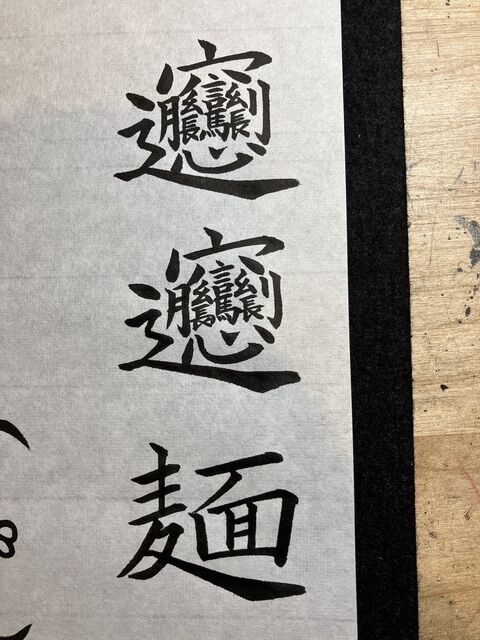 𰻞𰻞麺